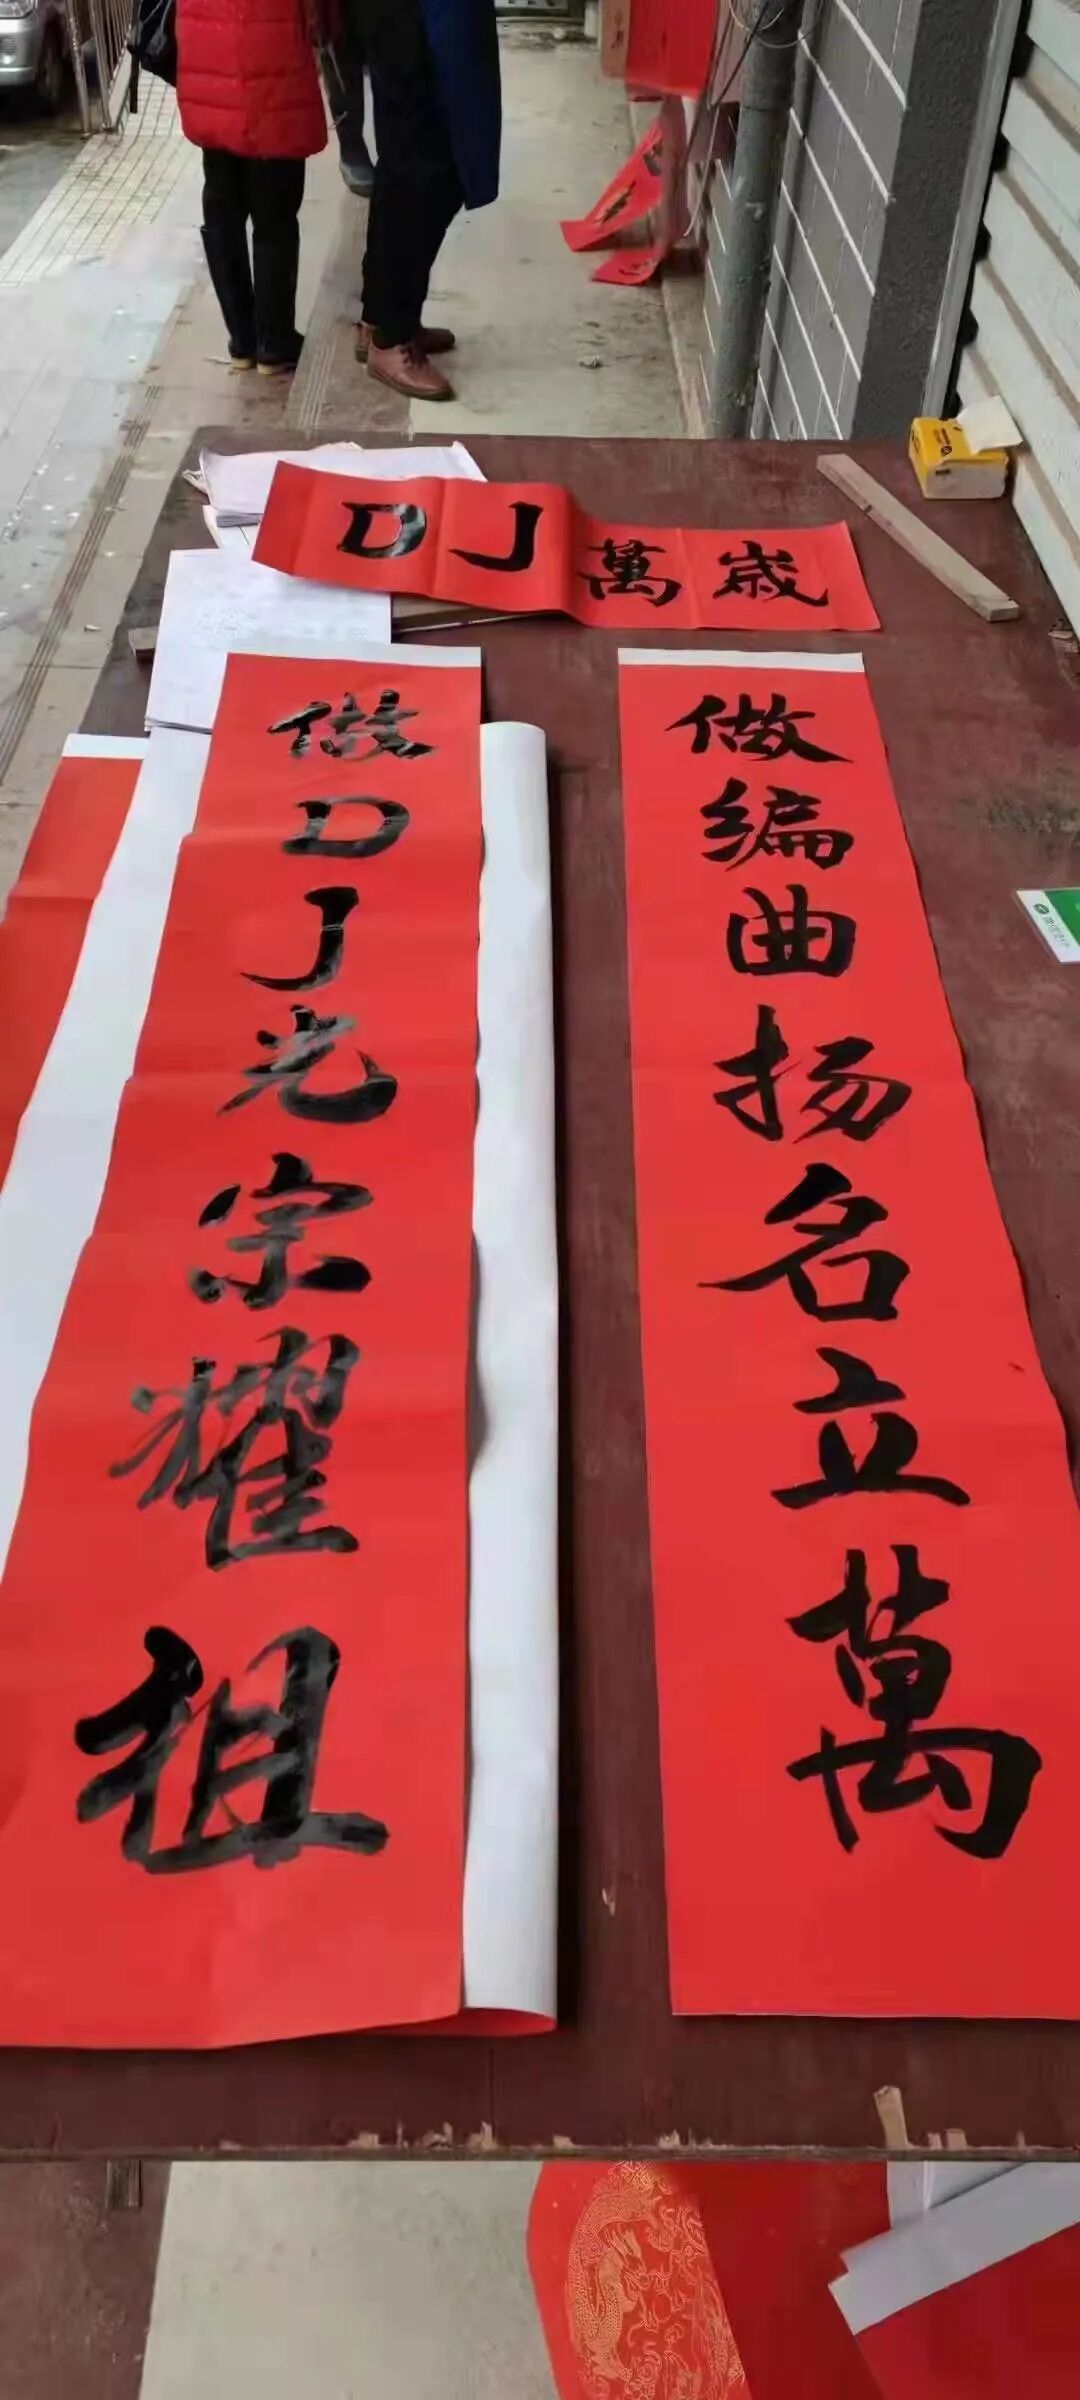 DJ萬歲
做DJ光宗耀祖
做编曲扬名立萬